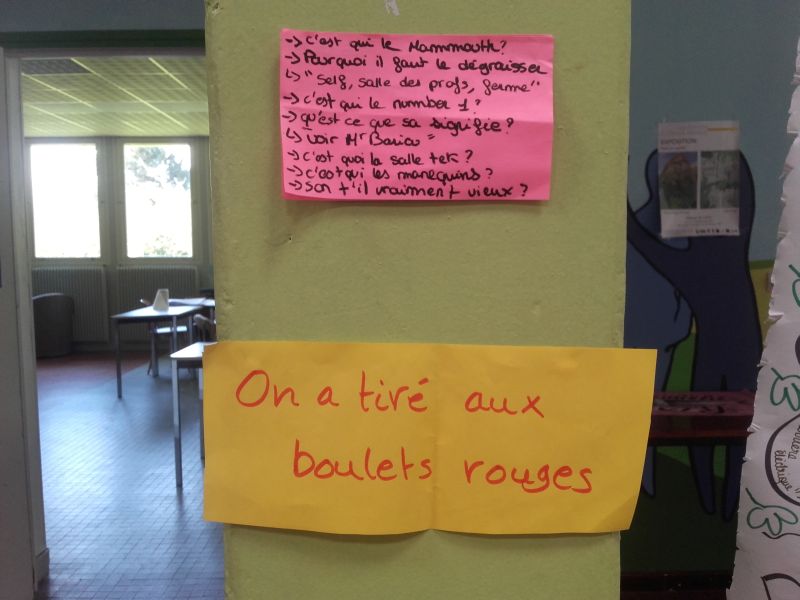 -> c'est qui le Mammouth?
-> Pourquoi il faut le dégraisser
↳ "Self, salle des profs, ferme"
-> c'est qui le number 1?
-> qu'est ce que sa signifie?
↳ voir Mr
-> c'est quoi la salle tek?
-> c'est qui les manequins?
-> son t'il vraiment vieux?
On a tiré aux
boulets rouges
EXPOSITION
électrique